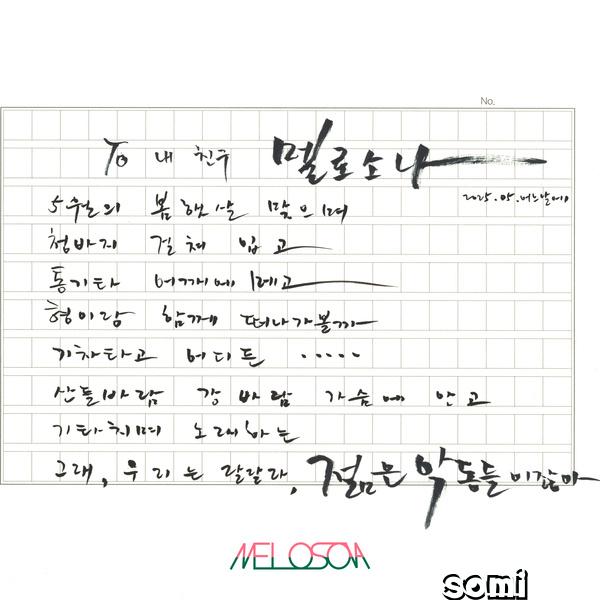 No.
To 내 친구 멜로소나
2025.05.어느날에
5월의 봄햇살 맞으며
청바지 걸쳐 입고
통기타 어깨에 메고
형이랑 함께 떠나가볼까
기차타고 어디든 .....
산들바람 강바람 가슴에 안고
기타치며 노래하는
그래, 우리는 랄랄라, 젊은 악동들이잖아
MELOSONA
somi